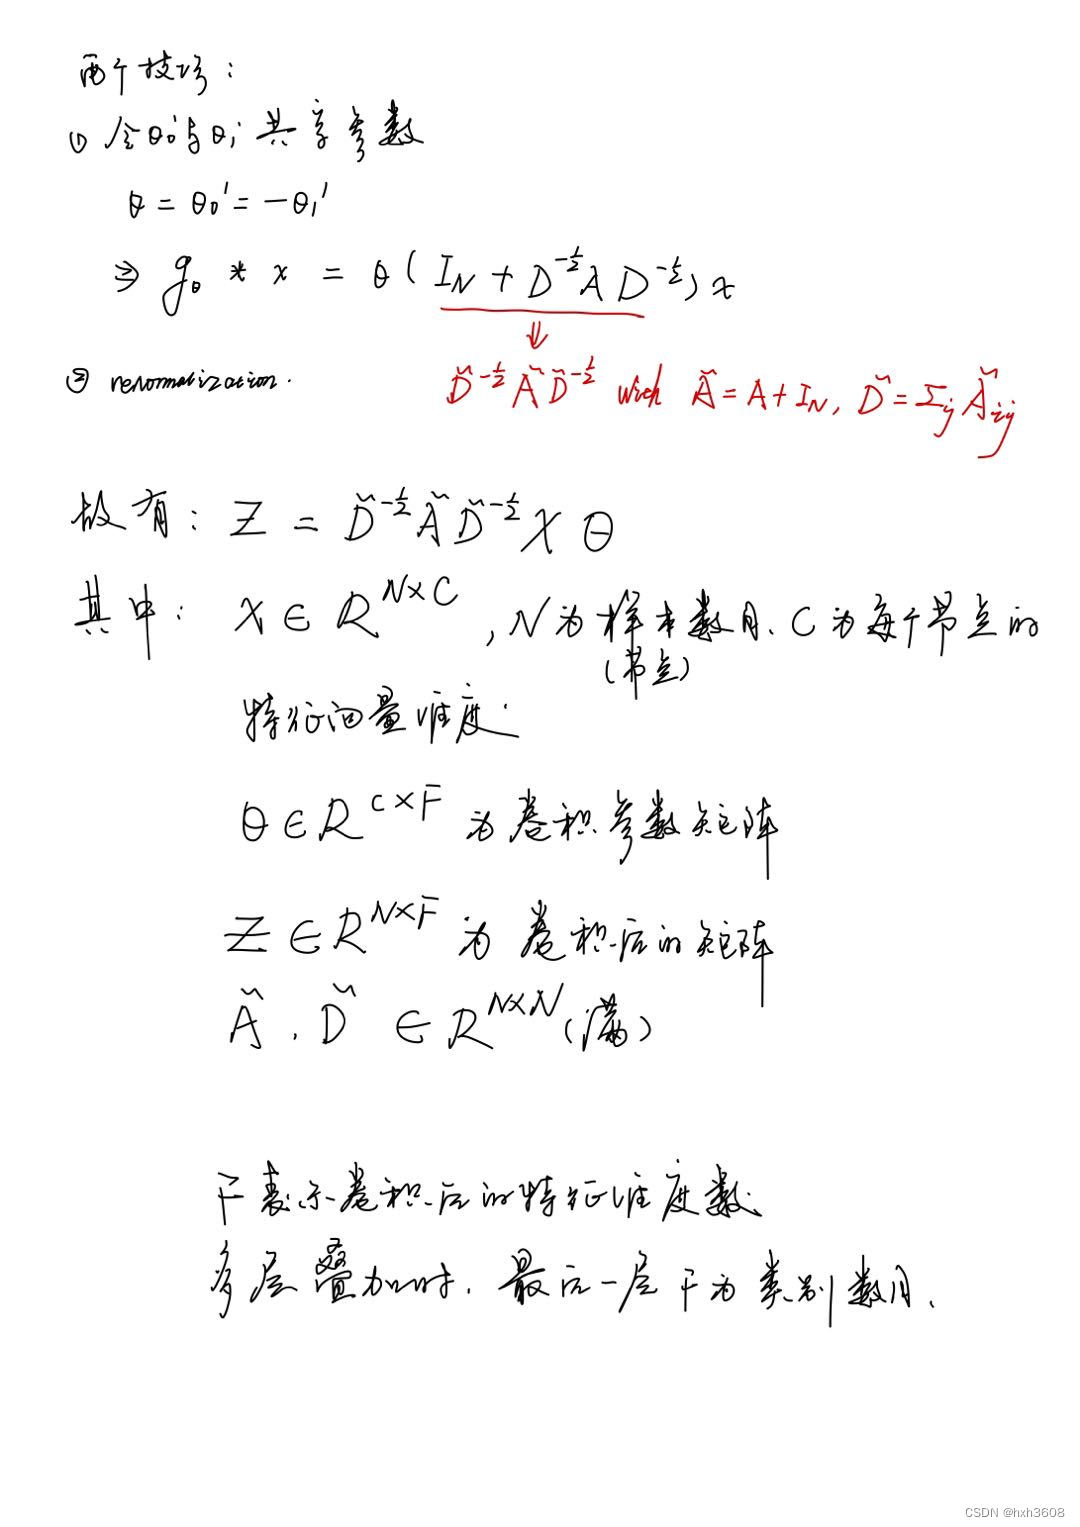 两个技巧：
① 令θ₀'与θ₁'共享参数
θ = θ₀' = -θ₁'
⇒ g_θ * x = θ(I_N + D^{-1/2} A D^{-1/2}) x
⇓
② renormalization.
D̃^{-1/2} Ã D̃^{-1/2} with Ã = A + I_N, D̃ = Σ_j Ã_ij
故有：Z = D̃^{-1/2} Ã D̃^{-1/2} X Θ
其中：X ∈ R^{N×C}, N为样本数目、C为每个节点的
(节点)
特征向量维度.
Θ ∈ R^{C×F} 为卷积参数矩阵
Z ∈ R^{N×F} 为卷积后的矩阵
Ã, D̃ ∈ R^{N×N} (满)
F表示卷积后的特征维度数、
多层叠加时, 最后一层F为类别数目.
CSDN @hxh3608